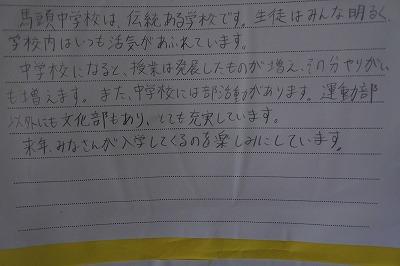 馬頭中学校は、伝統ある学校です。生徒はみんな明るく、
学校内はいつも活気があふれています。
中学校になると、授業は発展したものが増え、その分やりがい
も増えます。また、中学校には部活動があります。運動部
以外にも文化部もあり、とても充実しています。
来年、みなさんが入学してくるのを楽しみにしています。